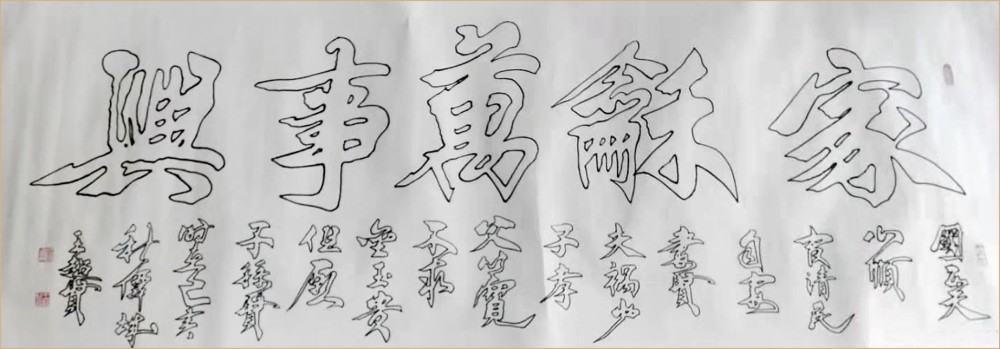 家龢萬事興
國正天
心順
官清民
自安
妻賢
夫禍少
子孝
父心寬
不求
金玉貴
但願
子孫賢
己亥
秋
王